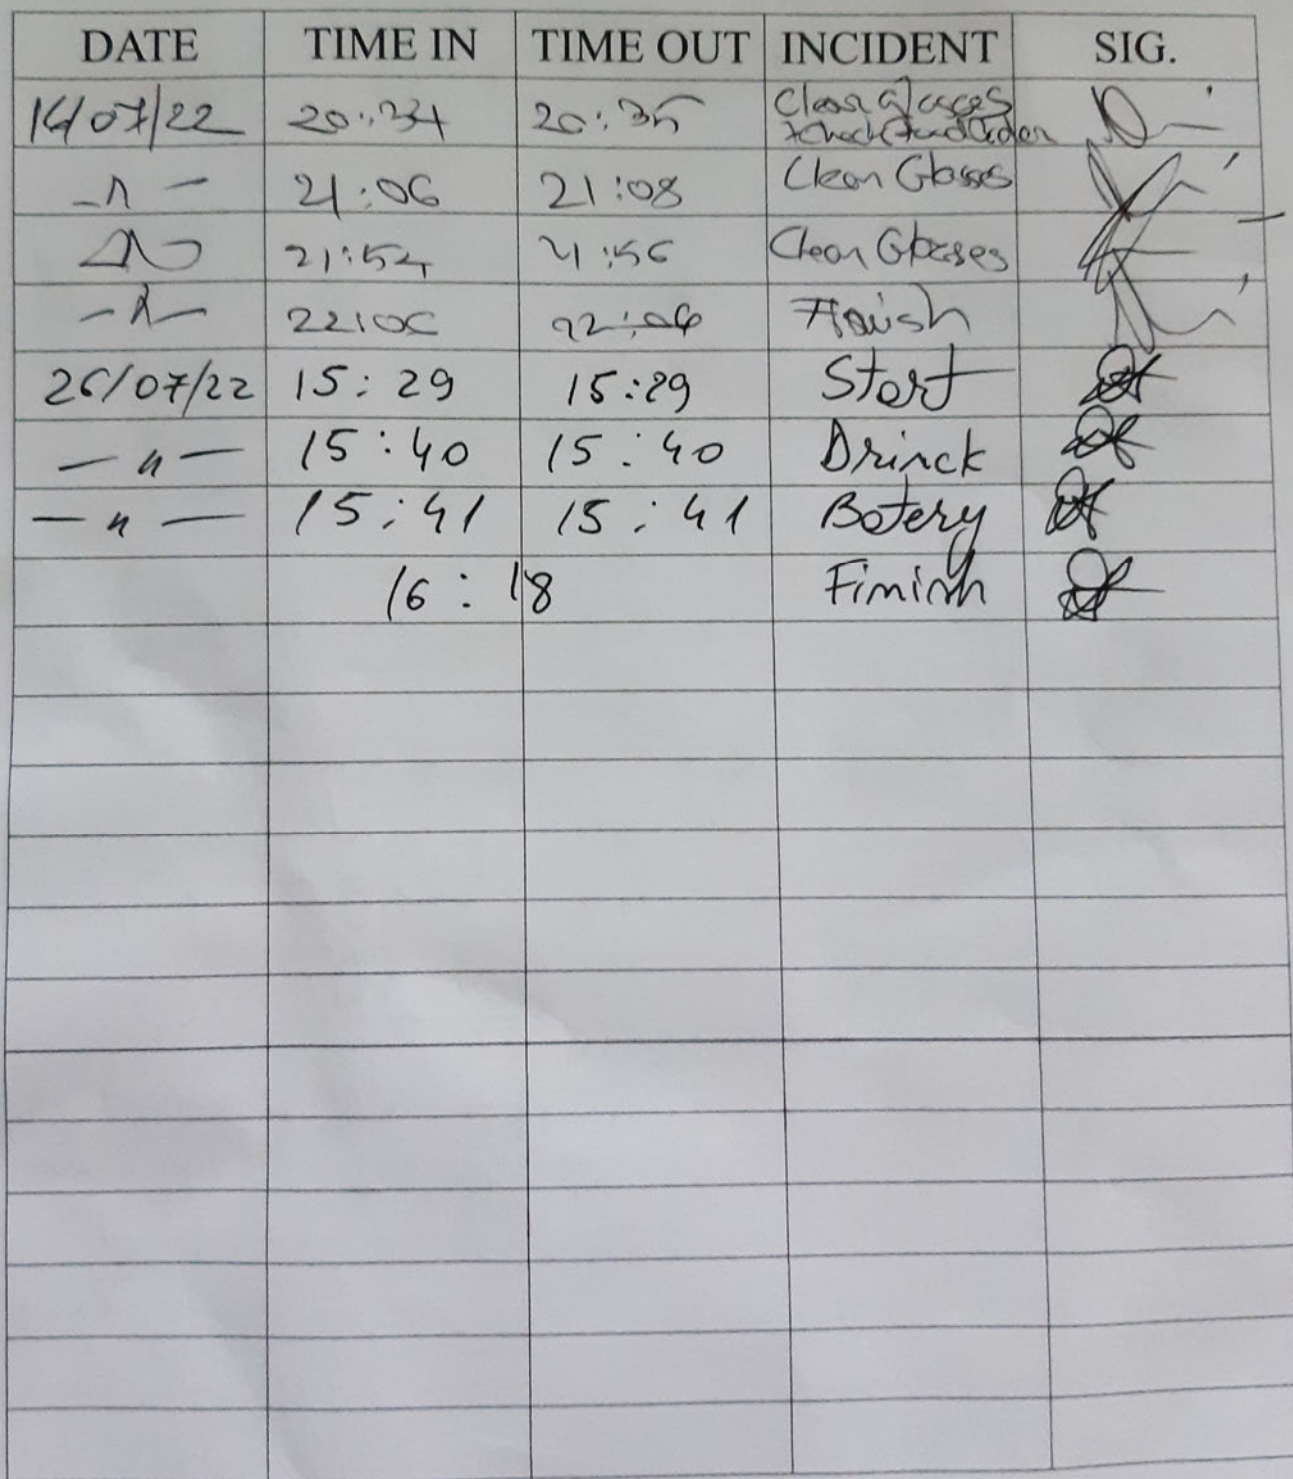 DATE TIME IN TIME OUT INCIDENT SIG.
14/07/22 20:34 20:35 Clean glasses
— 〃 — 21:06 21:08 Clean Glasses
— 〃 — 21:54 21:56 Clean Glasses
— 〃 — 22:06 22:06 Finish
26/07/22 15:29 15:29 Start
— 〃 — 15:40 15:40 Drinck
— 〃 — 15:41 15:41 Batery
16:18 Finish